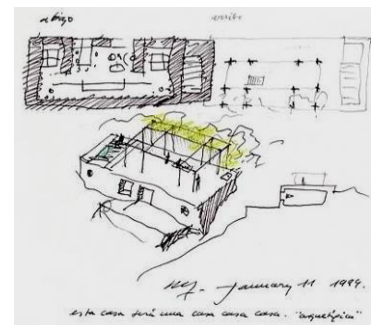 abajo arriba
january 11 1994.
esta casa será una casa casa casa. "arquetípica"